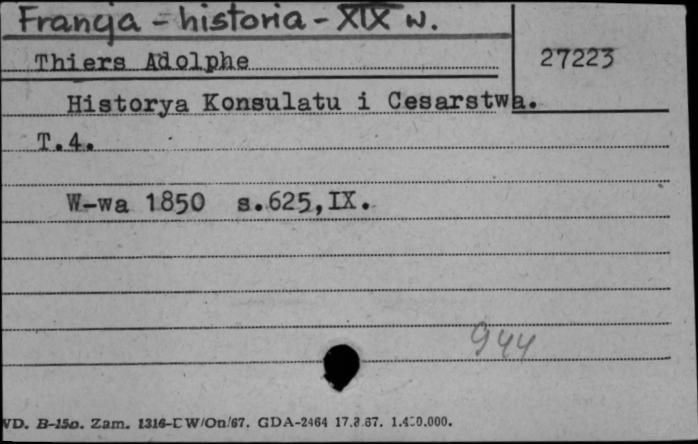 Francja - historia - XIX w.
Thiers Adolphe
27223
Historya Konsulatu i Cesarstwa.
T.4.
W-wa 1850 s.625,IX.
944
WD. B-15o. Zam. 1316-DW/On/67. GDA-2464 17.8.67.